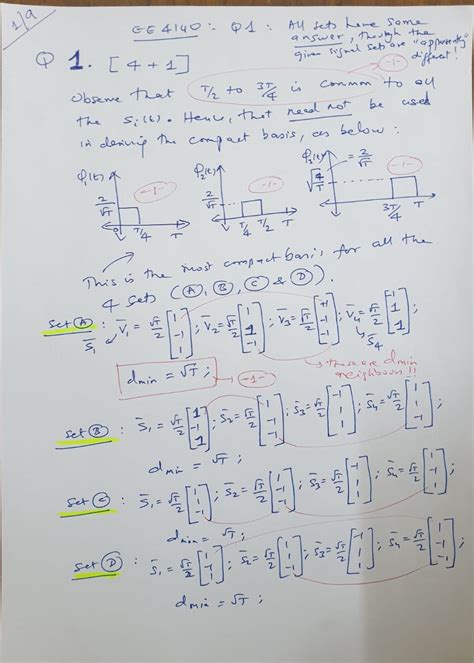 1/9
EE4140:- Q1: All sets have same
answer, though the
given signal sets are "apparently"
different!
Q 1. [4+1]
-1-
Observe that T/2 to 3T/4 is common to all
the Si(t). Hence, that need not be used
in deriving the compact basis, as below:
φ1(t) φ2(t) φ3(t) = 2/√T
-1- -1- √(4/T) -1-
2/√T 2/√T
0 T/4 T T/4 T/2 T 3T/4 T
This is the most compact basis for all the
4 sets (A, B, C & D).
Set A : V̄1 = √T/2 [1 1 -1]; V̄2 = √T/2 [1 1 1]; V̄3 = √T/2 [ -1 -1]; V̄4 = √T/2 [-1 1 1];
S̄1 S̄4
dmin = √T; -1- these are dmin
neighbours!!
Set B : S̄1 = √T/2 [1 -1 1]; S̄2 = √T/2 [1 -1]; S̄3 = √T/2 [-1 1 1]; S̄4 = √T/2 [1 -1 -1];
dmin = √T;
Set C : S̄1 = √T/2 [1 1 -1]; S̄2 = √T/2 [1 -1 -1]; S̄3 = √T/2 [-1 1 1]; S̄4 = √T/2 [1 -1 1];
dmin = √T;
Set D : S̄1 = √T/2 [1 -1 -1]; S̄2 = √T/2 [1 1 -1]; S̄3 = √T/2 [-1 1 1]; S̄4 = √T/2 [1 -1 -1];
dmin = √T;